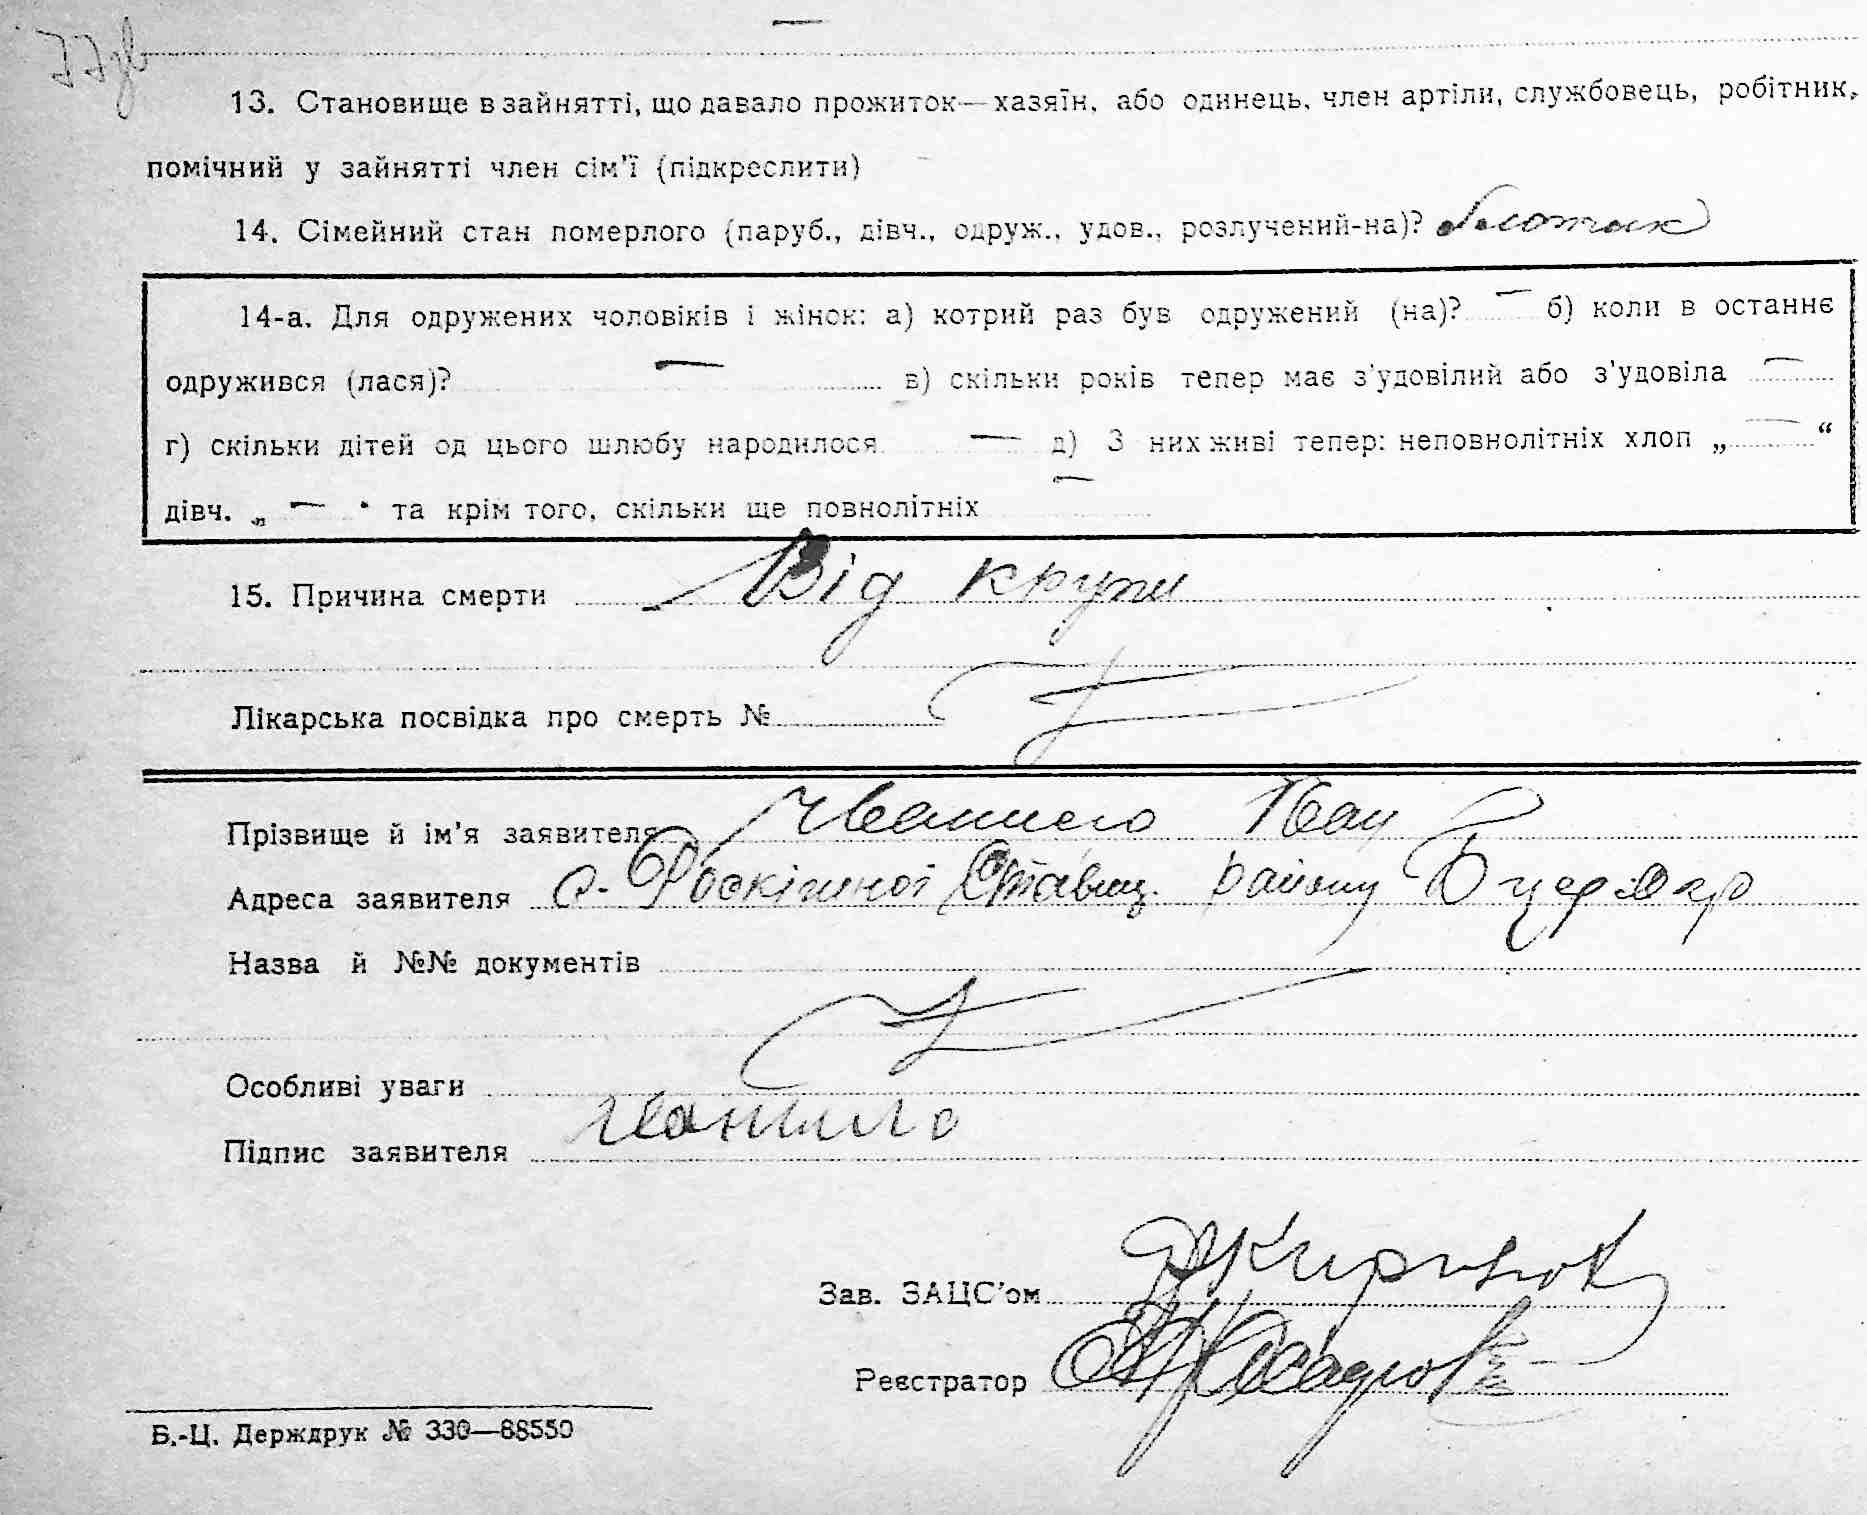 77зв
13. Становище в зайнятті, що давало прожиток—хазяїн, або одинець, член артіли, службовець, робітник,
помічний у зайнятті член сім'ї (підкреслити)
14. Сімейний стан померлого (паруб., дівч., одруж., удов., розлучений-на)?
14-а. Для одружених чоловіків і жінок: а) котрий раз був одружений (на)? — б) коли в останнє
одружився (лася)? — в) скільки років тепер має з'удовілий або з'удовіла —
г) скільки дітей од цього шлюбу народилося — д) З них живі тепер: неповнолітніх хлоп „ — “
дівч. „ — " та крім того, скільки ще повнолітніх —
15. Причина смерти Від крупи
Лікарська посвідка про смерть №
Прізвище й ім'я заявителя Іван
Адреса заявителя с. Розкішної Ставищ. району
Назва й №№ документів
Особливі уваги
Підпис заявителя
Зав. ЗАЦС'ом
Реєстратор
Б.-Ц. Держдрук № 330—88550